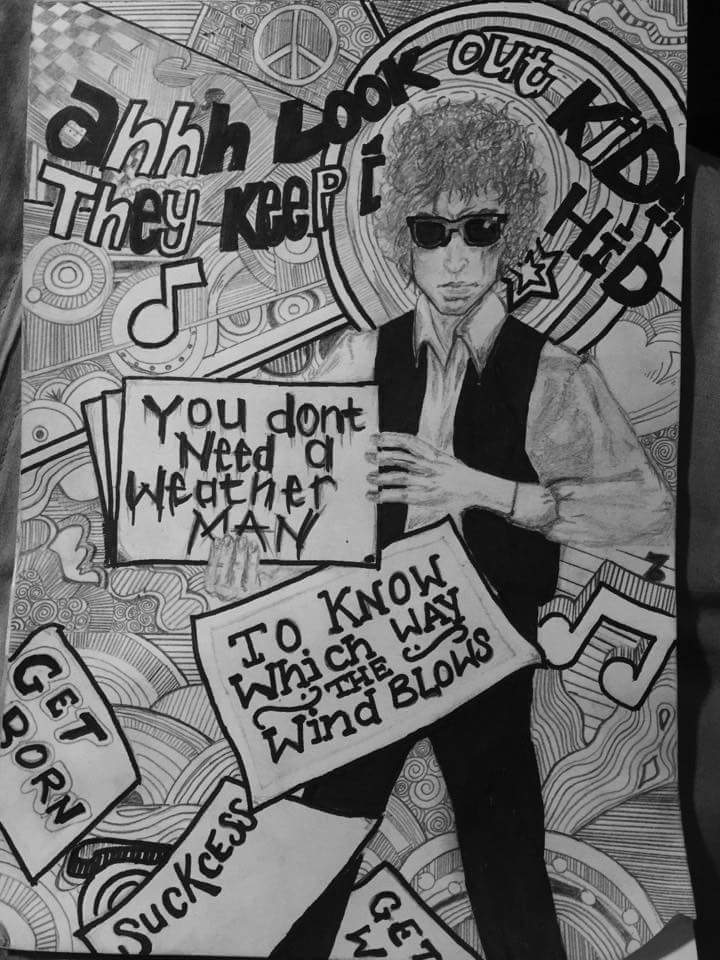 ahhh LOOK out KiD..
They KEEP it HiD
You dont
Need a
Weather
MAN
TO KNOW
Which WAY
THE
Wind BLOWS
GET
BORN
SucKcess
GET
W